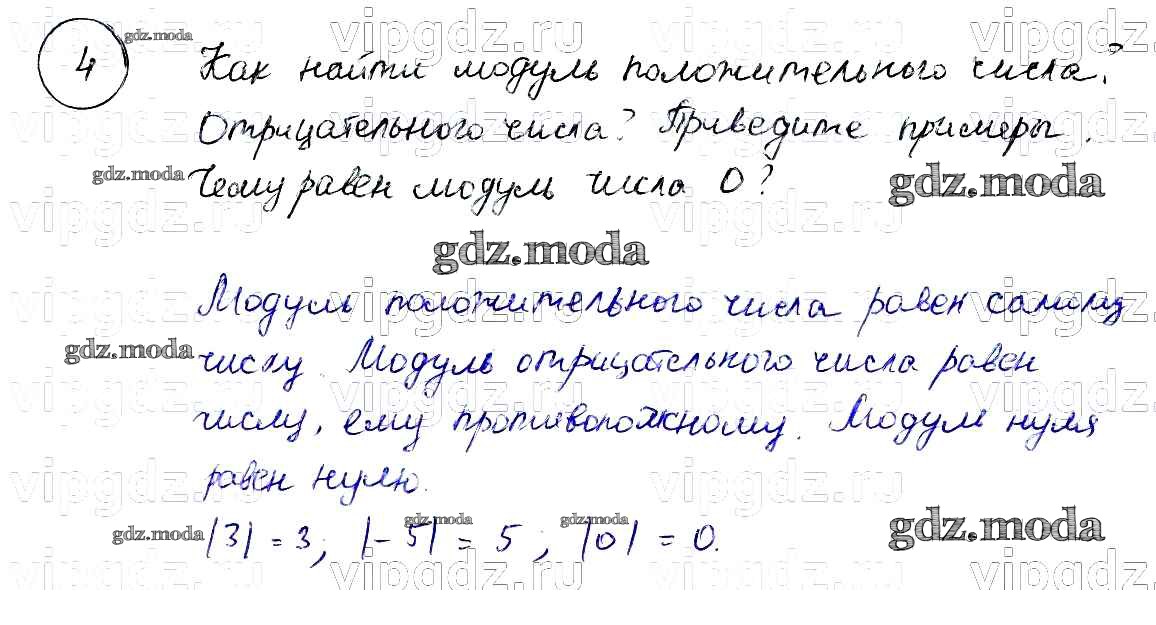 4 Как найти модуль положительного числа?
Отрицательного числа? Приведите примеры.
Чему равен модуль числа 0?
Модуль положительного числа равен самому
числу. Модуль отрицательного числа равен
числу, ему противоположному. Модуль нуля
равен нулю.
|3| = 3; |-5| = 5; |0| = 0.
vipgdz.ru
gdz.moda